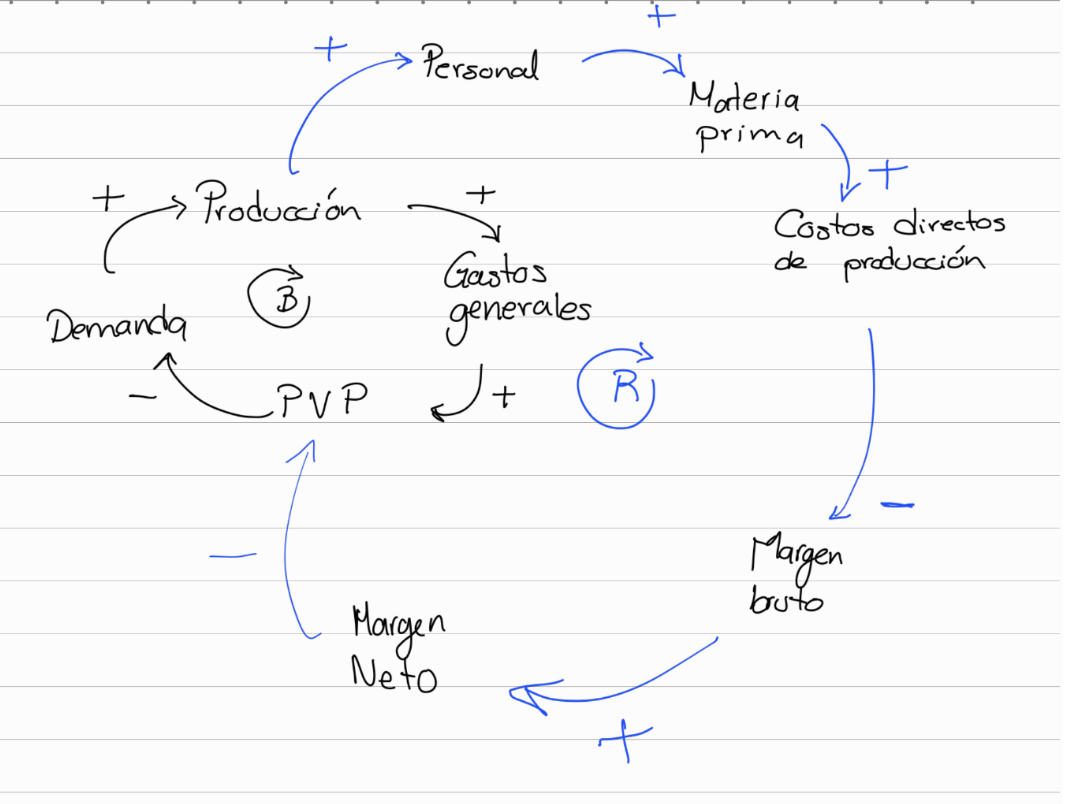 +
+
Personal
Materia
prima
+
+
Producción
+
Costos directos
de producción
Gastos
generales
B
Demanda
R
-
PVP
+
-
-
Margen
bruto
Margen
Neto
+